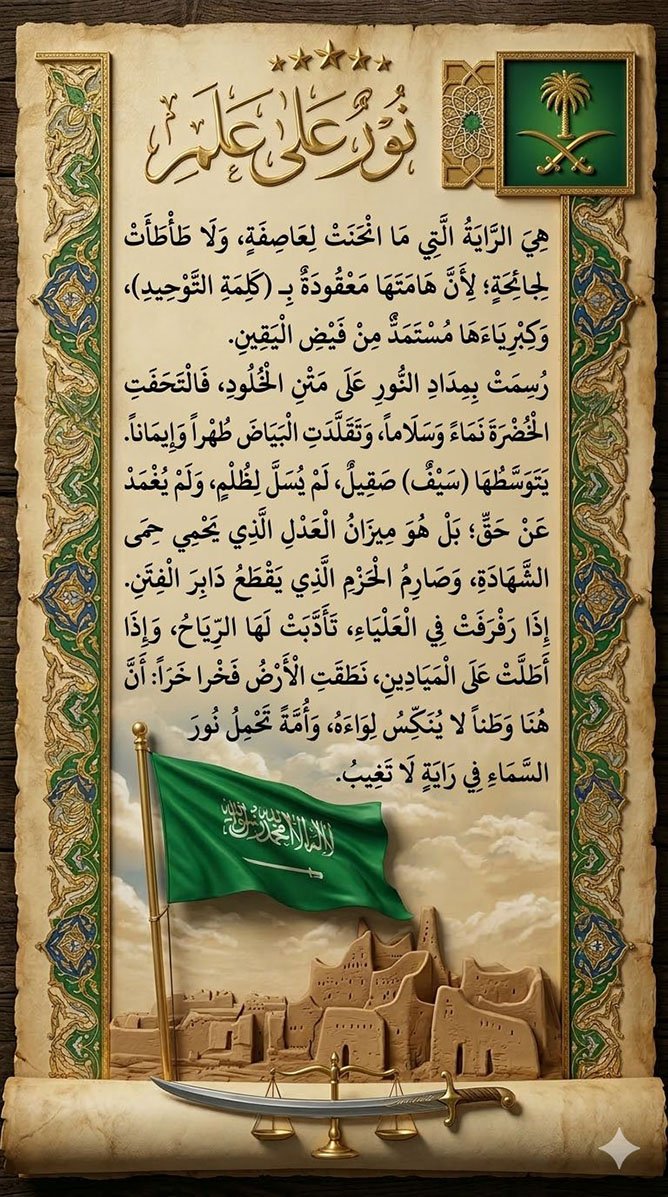 نُوْرٌ عَلَى عَلَمٍ
هِيَ الرَّايَةُ الَّتِي مَا انْحَنَتْ لِعَاصِفَةٍ، وَلَا طَأْطَأَتْ
لِجائِحَةٍ؛ لِأَنَّ هَامَتَهَا مَعْقُودَةٌ بِـ (كَلِمَةِ التَّوْحِيدِ)،
وَكِبْرِيَاءَهَا مُسْتَمَدٌّ مِنْ فَيْضِ الْيَقِينِ.
رُسِمَتْ بِمِدَادِ النُّورِ عَلَى مَتْنِ الْخُلُودِ، فَالْتَحَفَتِ
الْخُضْرَةَ نَمَاءً وَسَلَاماً، وَتَقَلَّدَتِ الْبَيَاضَ طُهْراً وَإِيمَاناً.
يَتَوَسَّطُهَا (سَيْفٌ) صَقِيلٌ، لَمْ يُسَلَّ لِظُلْمٍ، وَلَمْ يُغْمَدْ
عَنْ حَقٍّ؛ بَلْ هُوَ مِيزَانُ الْعَدْلِ الَّذِي يَحْمِي حِمَى
الشَّهَادَةِ، وَصَارِمُ الْحَزْمِ الَّذِي يَقْطَعُ دَابِرَ الْفِتَنِ.
إِذَا رَفْرَفَتْ فِي الْعَلْيَاءِ، تَأَدَّبَتْ لَهَا الرِّيَاحُ، وَإِذَا
أَطَلَّتْ عَلَى الْمَيَادِينِ، نَطَقَتِ الْأَرْضُ فَخْرا خَرَاً: أَنَّ
هُنَا وَطَناً لا يُنَكِّسُ لِوَاءَهُ، وَأُمَّةً تَحْمِلُ نُورَ
السَّمَاءِ فِي رَايَةٍ لَا تَغِيبُ.
لا إله إلا الله محمد رسول الله